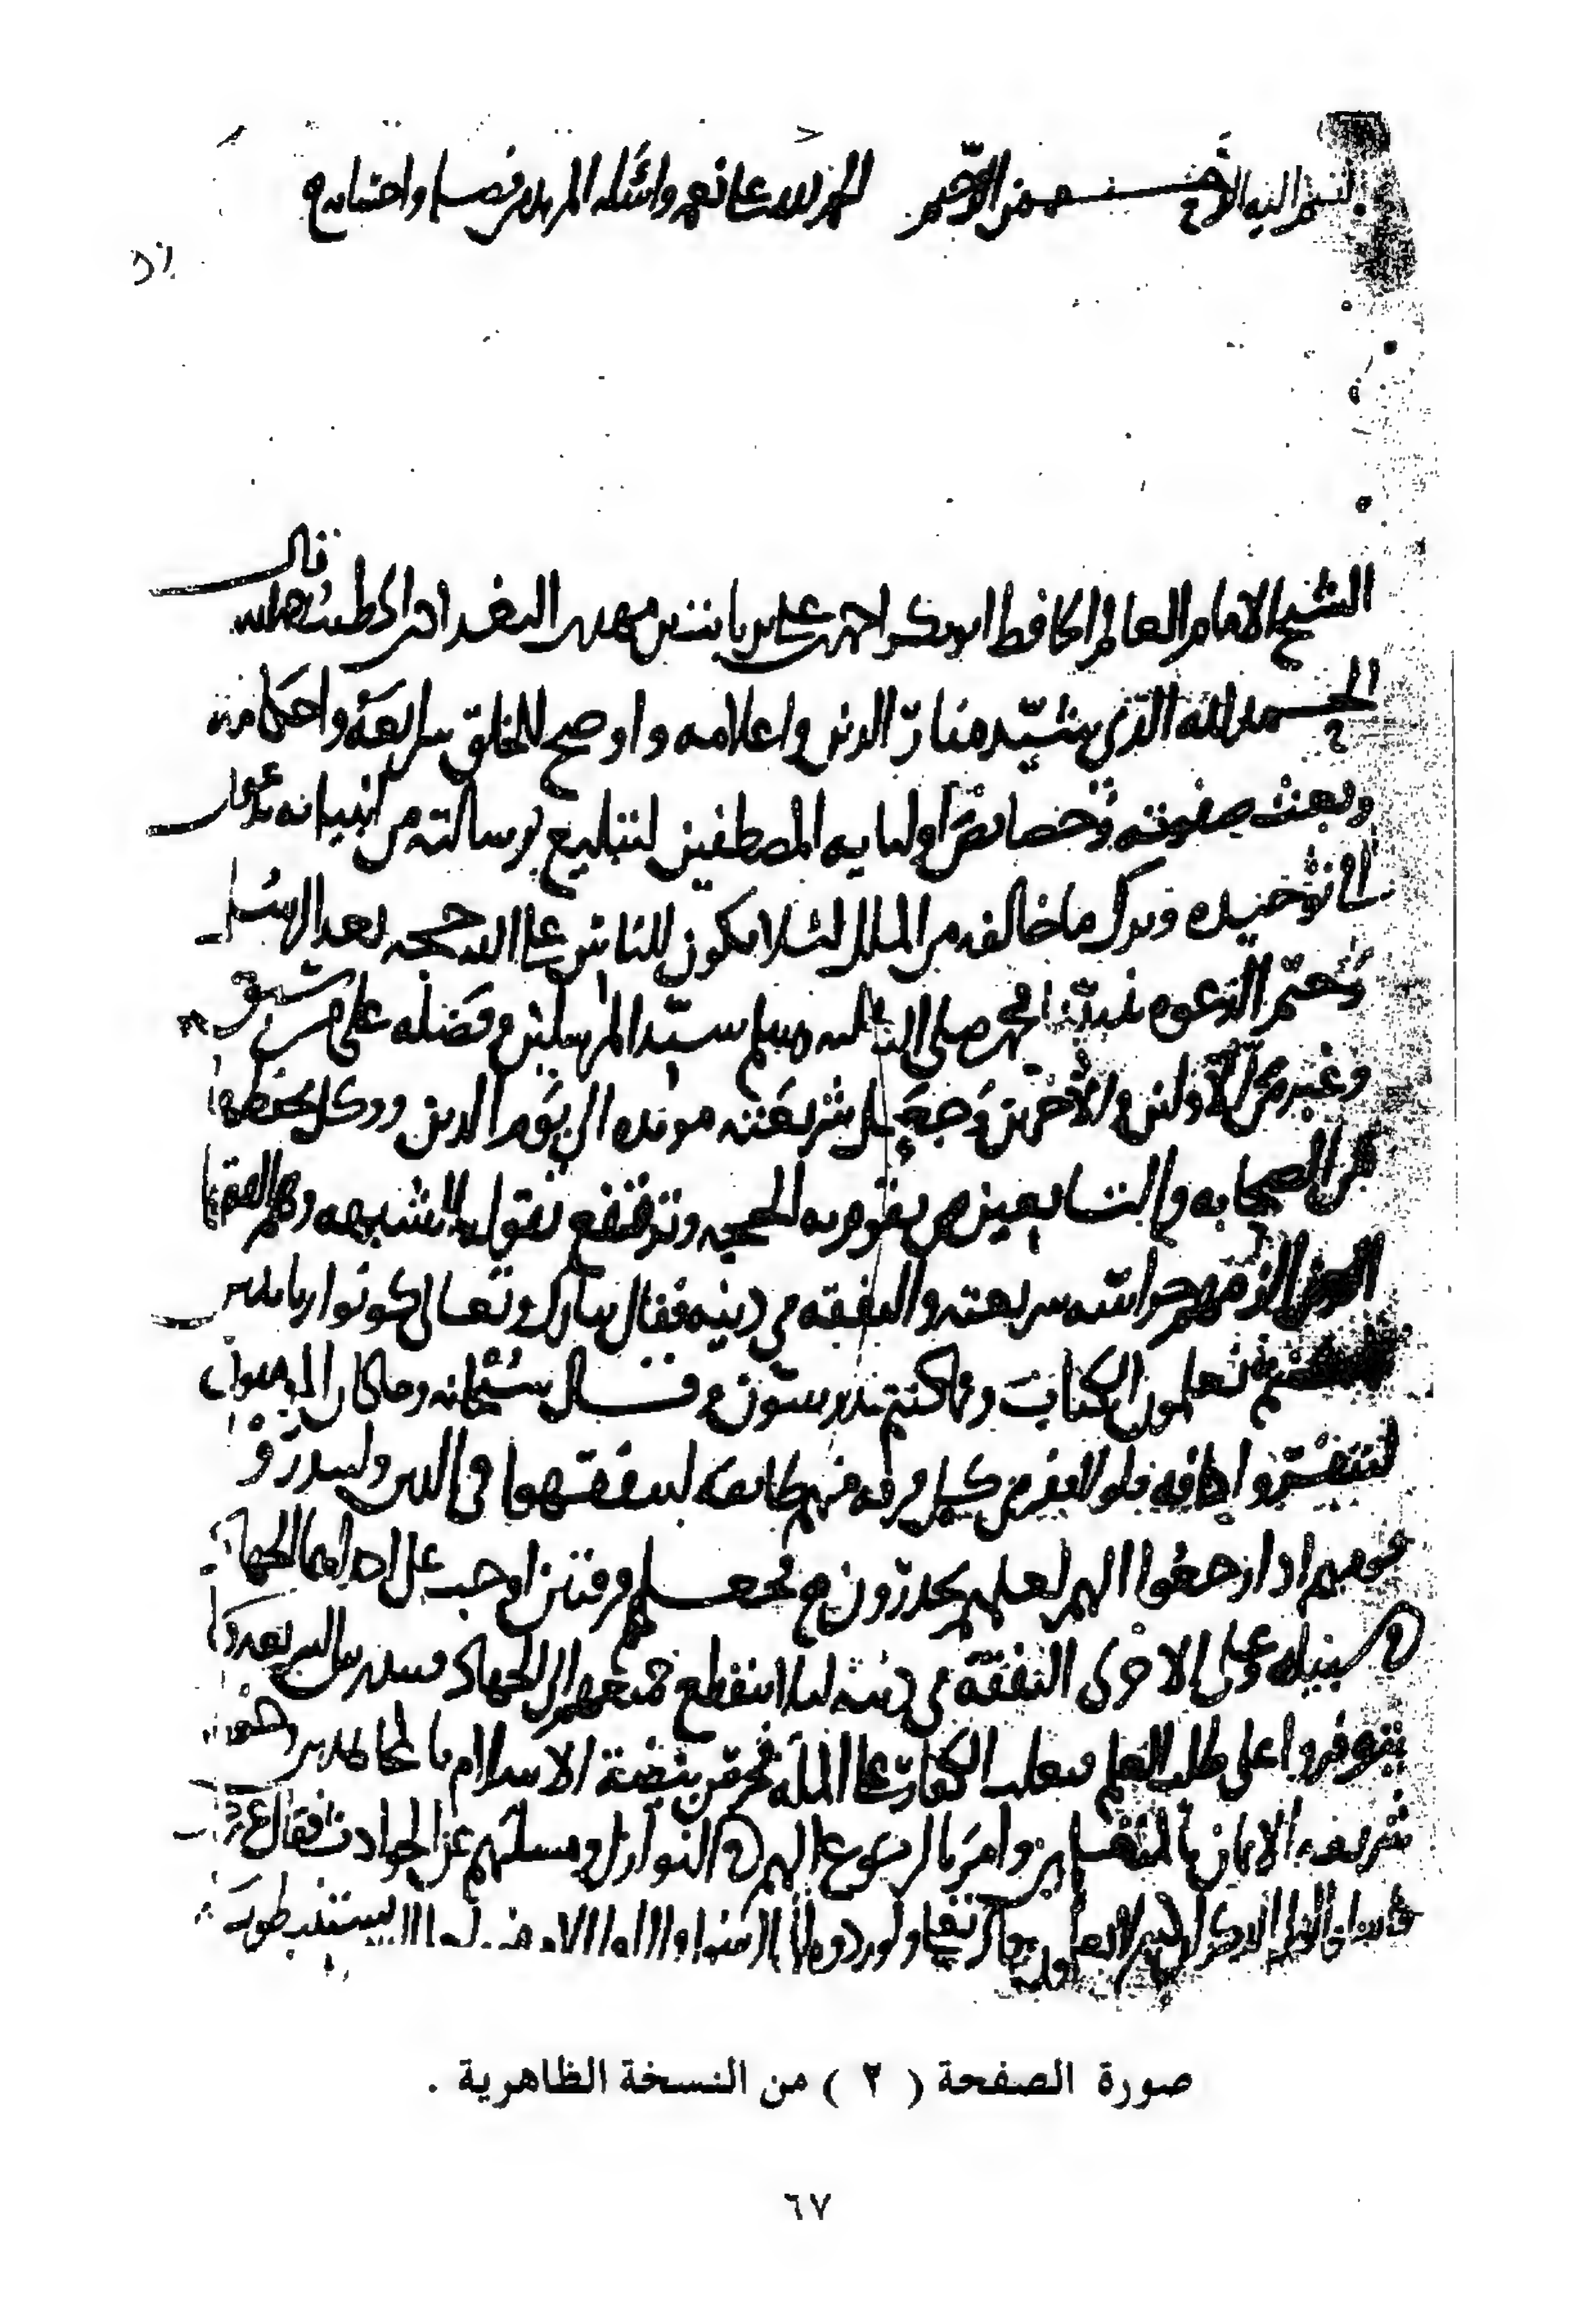 بسم الله الرحمن الرحيم الحمد لله على نعمه واسله المزيد من فضله
قال
الشيخ الامام العالم الحافظ ابو بكر احمد بن علي بن ثابت بن مهدي البغدادي الخطيب
الحمد لله الذي شيد منار الدين واعلامه واوضح للخلق شرايعه واحكامه
وبعث صفوته وخصائص اوليايه المصطفين لتبليغ رسالته من انبيائه
الى توحيده وترك ما خالفه من الملل لئلا يكون للناس على الله حجه بعد الرسل
وختم الدعوه بنبينا محمد صلى الله عليه وسلم سيد المرسلين وفضله على من سبق
وغبر من الاولين والاخرين وجعل شريعته مؤيده الى يوم الدين ووكل بحفظها
من الصحابه والتابعين من يقوم به الحجه وترتفع بقوله الشبهه وهم الفقها
الذين الزمهم حراسه شريعته والتفقه في دينه فقال تبارك وتعالى كونوا ربانيين
بما كنتم تعلمون الكتاب وبما كنتم تدرسون وقال سبحانه وما كان المومنون
لينفروا كافه فلولا نفر من كل فرقه منهم طايفه ليتفقهوا في الدين ولينذروا
قومهم اذا رجعوا اليهم لعلهم يحذرون فجعلهم فرقتين اوجب على احديهما الجهاد
في سبيله وعلى الاخرى التفقه في دينه لئلا ينقطع جميعهم الى الجهاد فتندرس الشريعه ولا
يتوفروا على طلب العلم فيغلب الكفار على الملة فحرس بيضة الاسلام بالمجاهدين وحفظ
شريعه الايمان بالمتعلمين وامر بالرجوع اليهم في النوازل ومسلتهم عن الحوادث فقال عز
فاسالوا اهل الذكر ان كنتم لا تعلمون وقال تعالى ولو ردوه الى الرسول والى اولى الامر منهم لعلمه الذين يستنبطونه
صورة الصفحة ( ٢ ) من النسخة الظاهرية .
٦٧